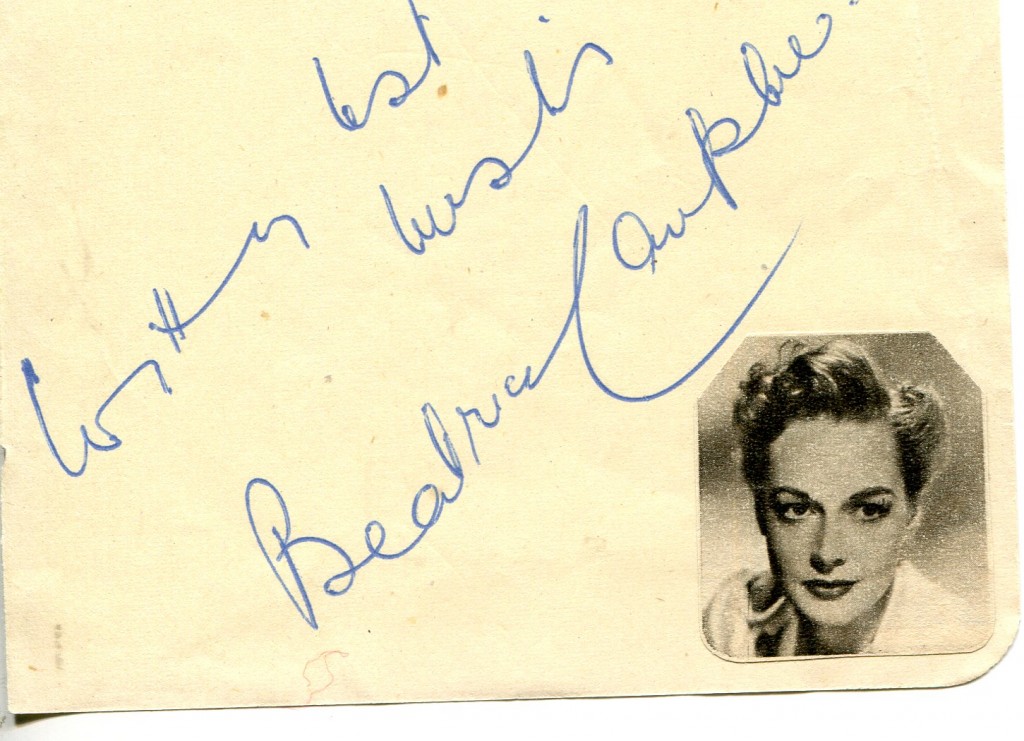 With best
wishes
Beatrice Campbell